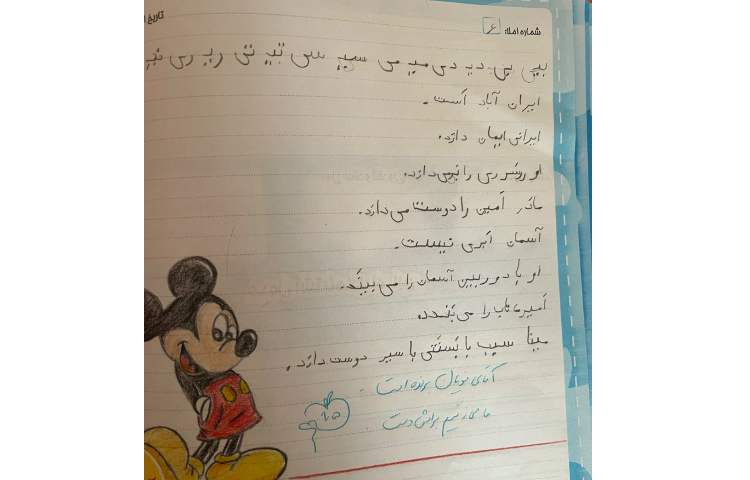 شماره املا: ۶ تاریخ
بیـ بی دیـ دی میـ می سیـ سی تیـ تی ریـ ری نیـ
ایران آباد اَست.
ایرانی ایمان دارَد.
او روسَری را بَرمی‌دارَد.
مادَر اَمین را دوست می‌دارَد.
آسمان اَبری نیست.
او با دوربین آسمان را می‌بینَد.
اَمیر تاب را می‌بَندد.
مینا سیب با بَستَنی با سیر دوست دارَد.
آقای برنده است
ما می‌زنیم براش دست